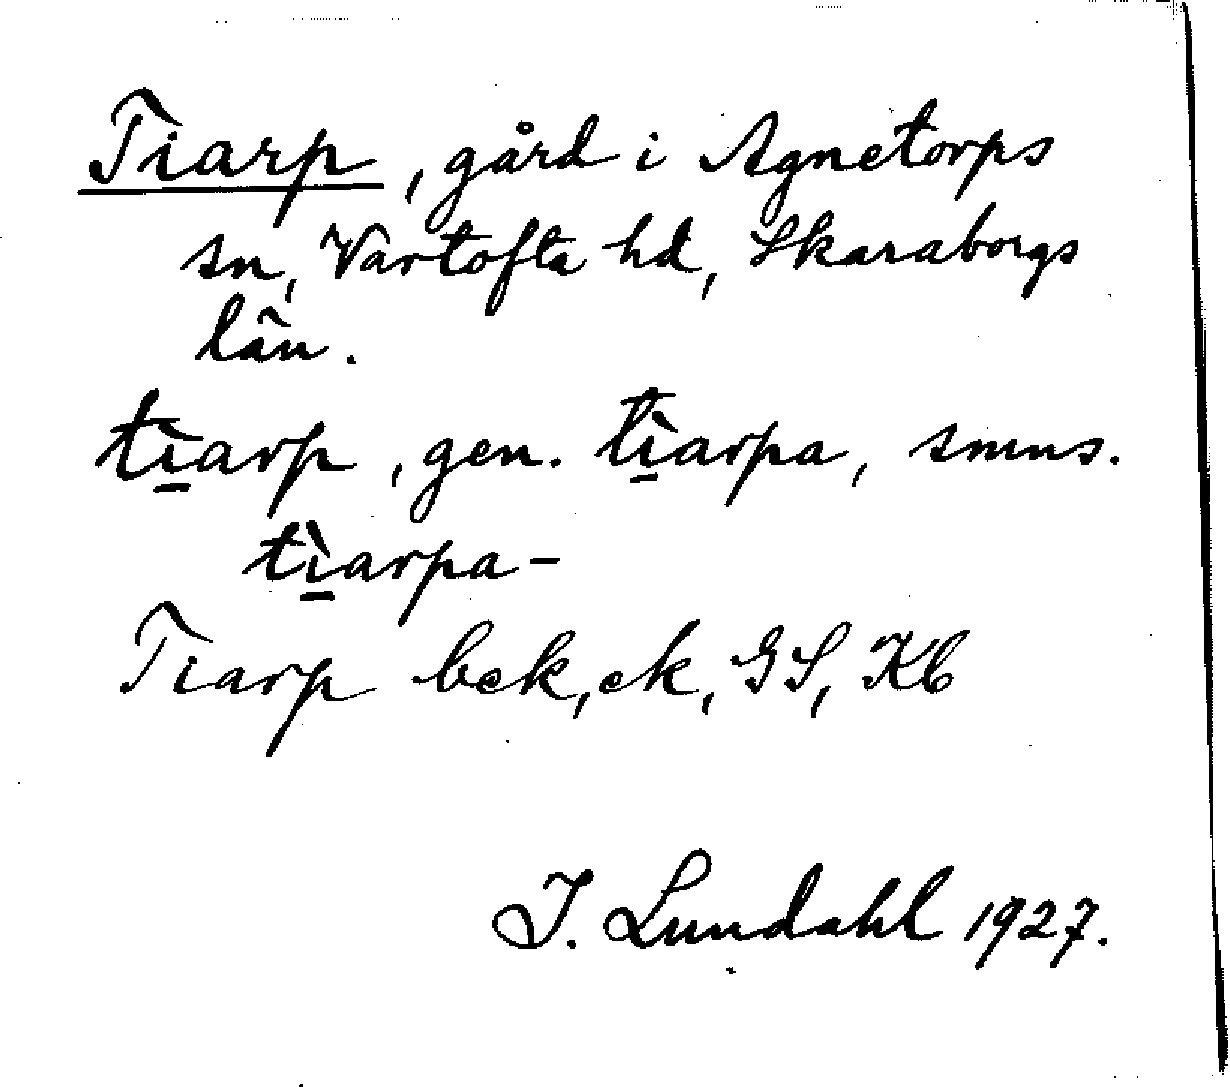 Tiarp, gård i Agnetorps
sn, Vartofta hd, Skaraborgs
län.
tì̠arp, gen. tì̠arpa, smns.
tì̠arpa-
Tiarp bek, ek, GS, Kb
I. Lundahl 1927.